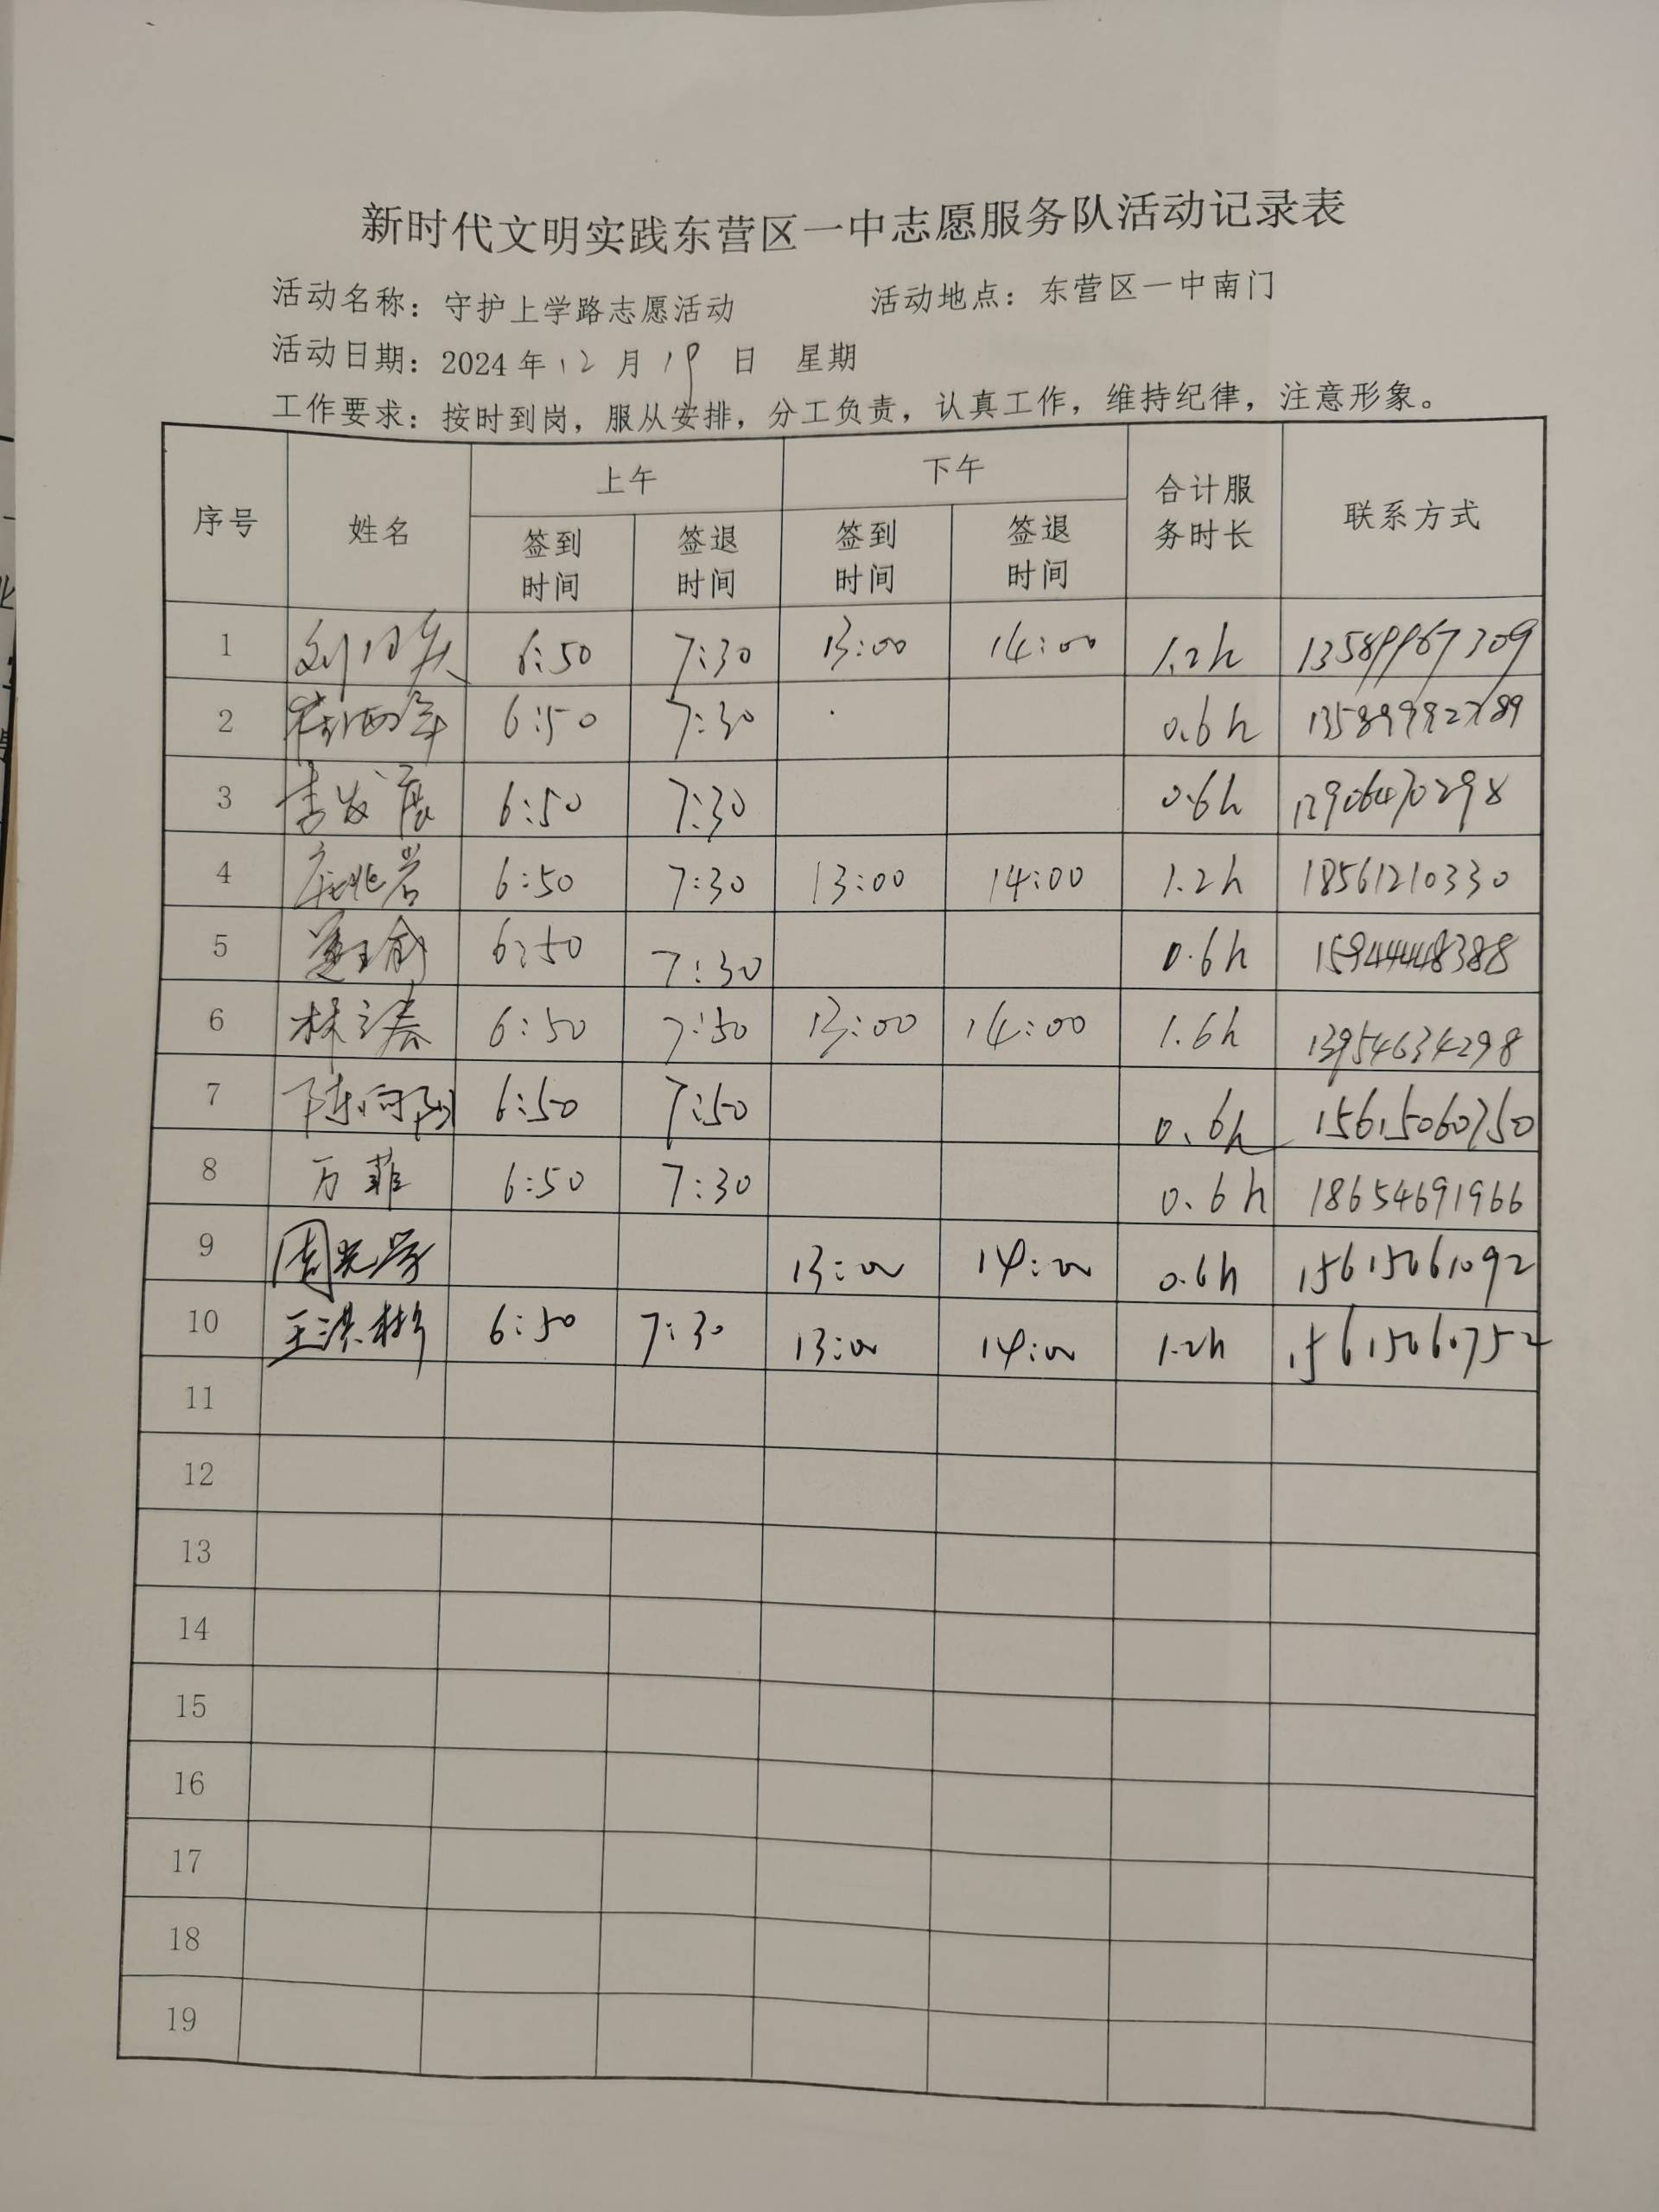 新时代文明实践东营区一中志愿服务队活动记录表
活动名称：守护上学路志愿活动 活动地点：东营区一中南门
活动日期：2024年12月19日 星期
工作要求：按时到岗，服从安排，分工负责，认真工作，维持纪律，注意形象。
序号 姓名 上午 下午 合计服务时长 联系方式
签到时间 签退时间 签到时间 签退时间
1 6:50 7:30 13:00 14:00 1.2h 13589967309
2 6:50 7:30 0.6h
3 李发展 6:50 7:30 0.6h
4 6:50 7:30 13:00 14:00 1.2h 18561210330
5 6:50 7:30 0.6h
6 林之春 6:50 7:50 13:00 14:00 1.6h 13954634298
7 陈向阳 6:50 7:50 0.6h 15615060750
8 万菲 6:50 7:30 0.6h 18654691966
9 周光学 13:00 14:00 0.6h 15615061092
10 王洪彬 6:50 7:30 13:00 14:00 1.2h 15615060752
11
12
13
14
15
16
17
18
19